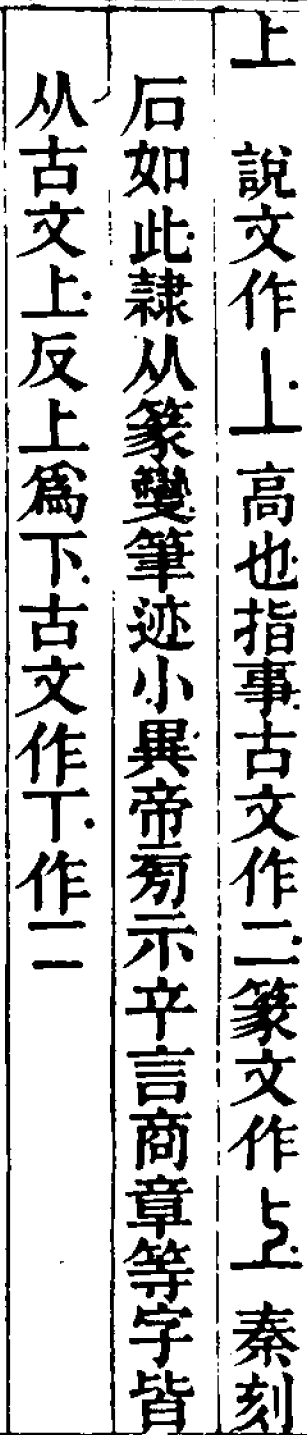 上　說文作丄高也指事古文作二篆文作𠄞秦刻
石如此隷从篆變筆迹小異帝㫄示䇂言商章等字皆
从古文上反上爲下古文作丅作二